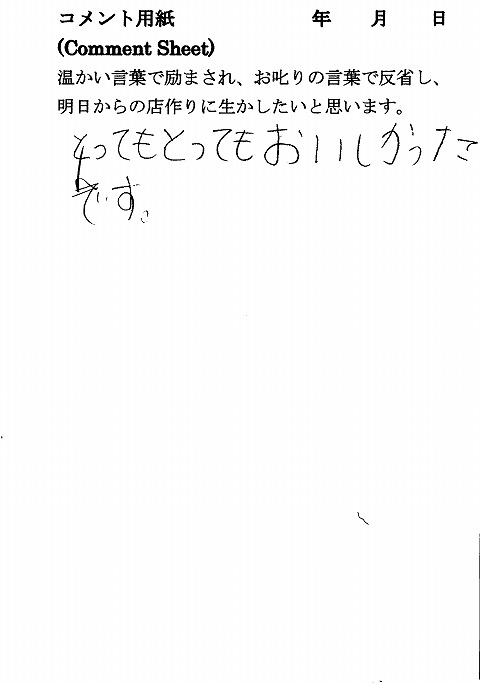 コメント用紙 年 月 日
(Comment Sheet)
温かい言葉で励まされ、お叱りの言葉で反省し、
明日からの店作りに生かしたいと思います。
とってもとってもおいしかった
です。